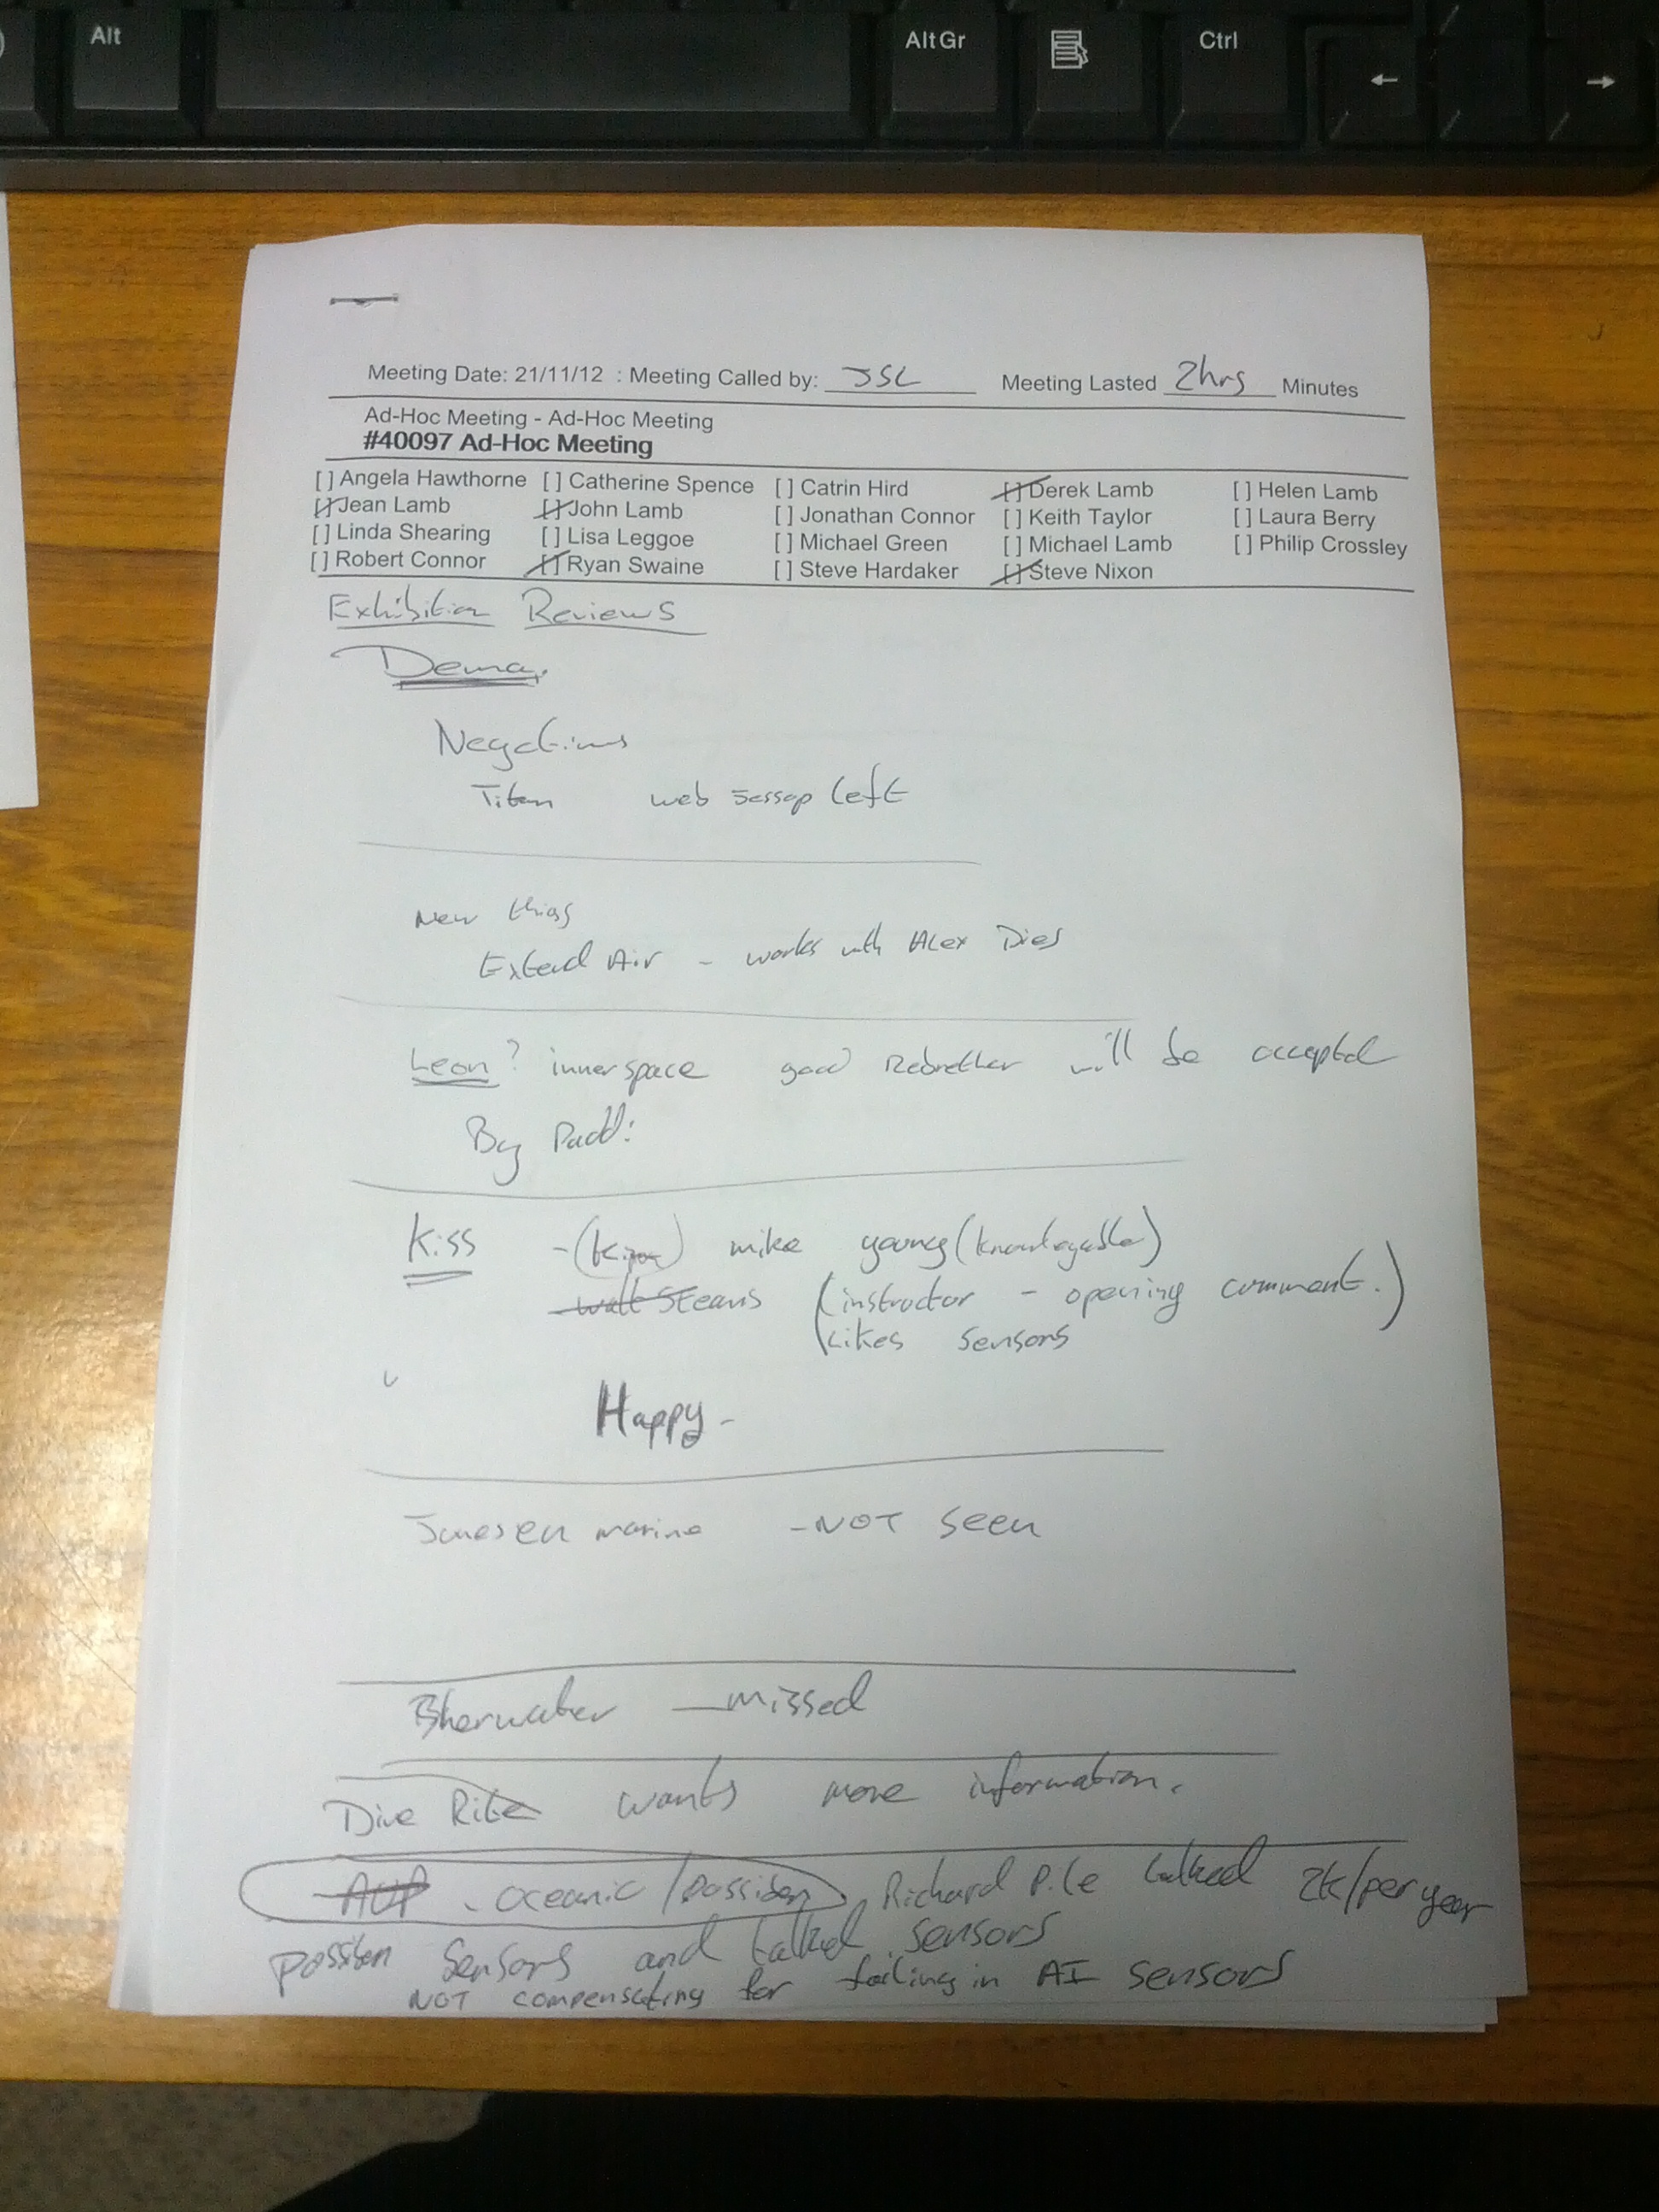 Alt
Alt Gr
Ctrl
←
→
Meeting Date: 21/11/12 : Meeting Called by: JSL Meeting Lasted 2hrs Minutes
Ad-Hoc Meeting - Ad-Hoc Meeting
#40097 Ad-Hoc Meeting
[ ] Angela Hawthorne [ ] Catherine Spence [ ] Catrin Hird [/] Derek Lamb [ ] Helen Lamb
[/] Jean Lamb [/] John Lamb [ ] Jonathan Connor [ ] Keith Taylor [ ] Laura Berry
[ ] Linda Shearing [ ] Lisa Leggoe [ ] Michael Green [ ] Michael Lamb [ ] Philip Crossley
[ ] Robert Connor [/] Ryan Swaine [ ] Steve Hardaker [/] Steve Nixon
Exhibition Reviews
Dema.
Negatives
Titan web Jessop left
New things
Extend Air - works with Alex Dies
Leon? innerspace good Rebrether will be accepted
By Paddi
Kiss - mike young (knowlegable)
Steans (instructor - opening comment.)
Likes sensors
Happy -
marine - NOT seen
Sherwater - missed
Dive Rite wants more information.
AUP - oceanic / possiden Richard Pile talked 2k/per year
possiden sensors and talked sensors
NOT compensating for failing in AI sensors